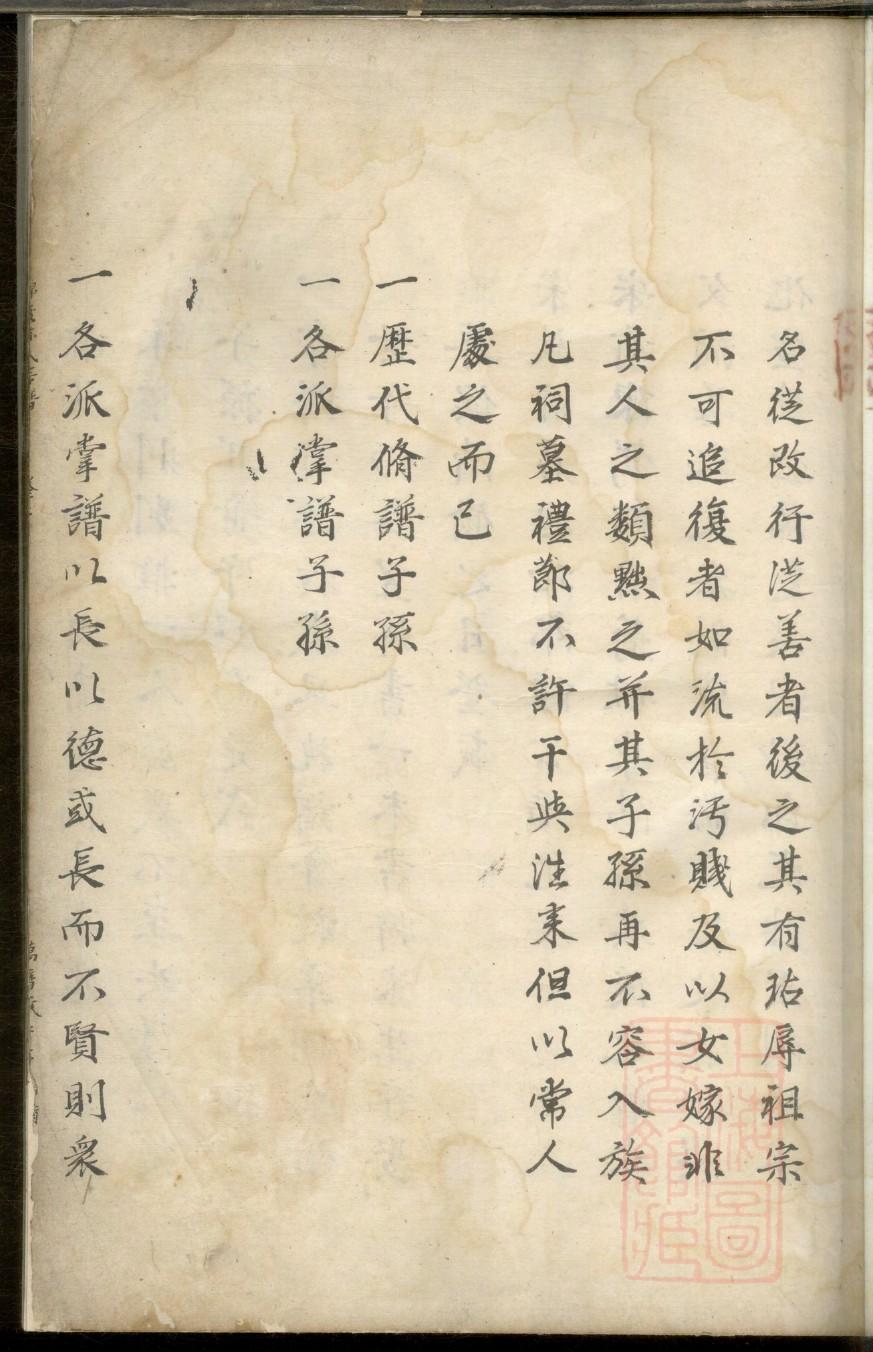 名從改行從善者後之其有玷辱祖宗
不可追復者如流於汚賤及以女嫁非
其人之類黜之并其子孫再不容入族
凡祠墓禮節不許干與徃來但以常人
處之而已
一歷代脩譜子孫
一各派掌譜子孫
一各派掌譜以長以德或長而不賢則衆
上海圖書館藏